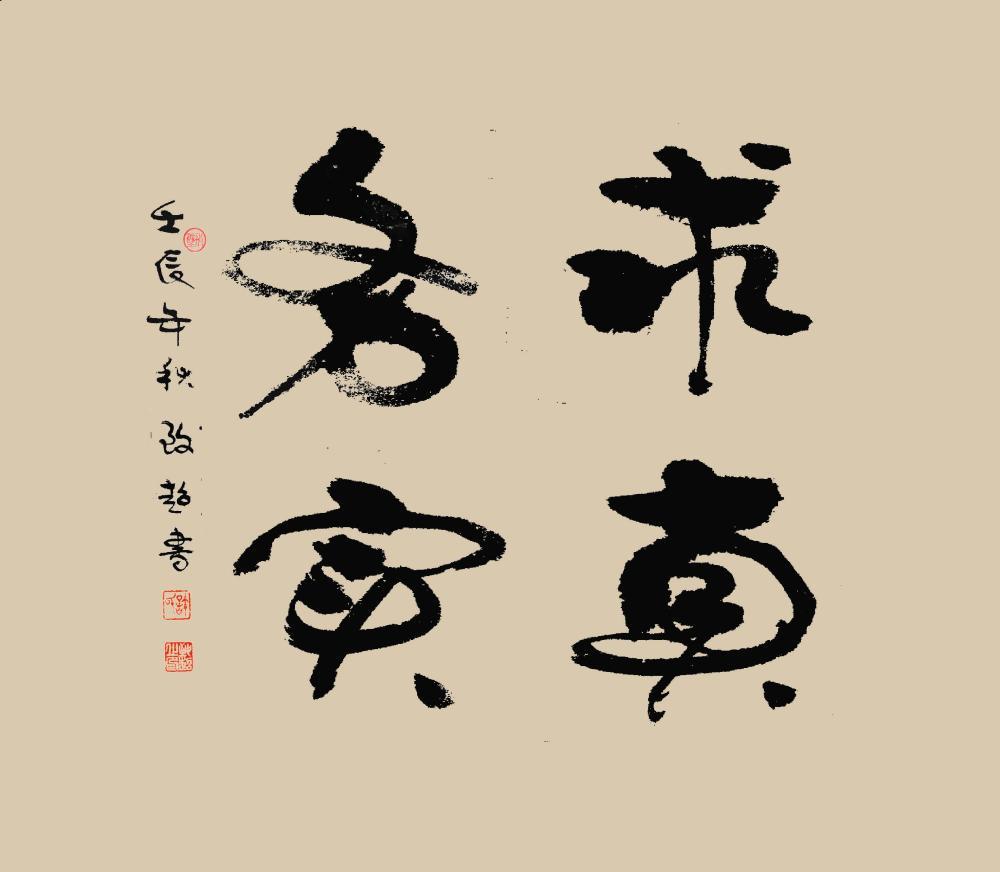 求真
务实
壬辰年秋
书